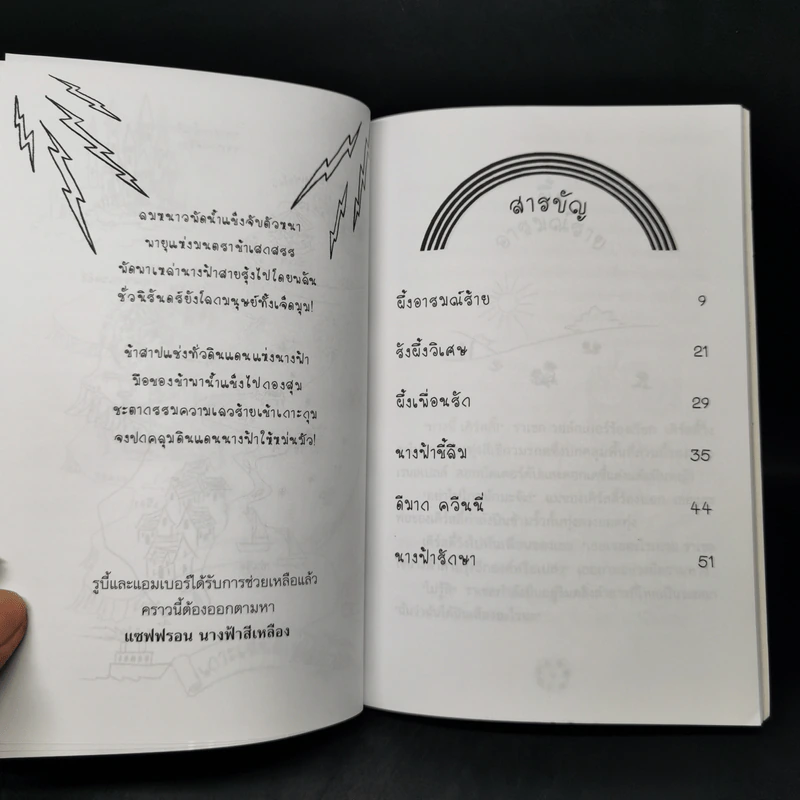 ลมหนาวพัดน้ำแข็งจับตัวหนา
พายุแห่งมนตราข้าเสกสรร
พัดพาเหล่านางฟ้าสายรุ้งไปโดยพลัน
ชั่วนิรันดร์ยังโลกมนุษย์ทั้งเจ็ดมุม!
ข้าสาปแช่งทั่วดินแดนแห่งนางฟ้า
มือของข้าพาน้ำแข็งไปกองสุม
ชะตากรรมความเลวร้ายเข้าเกาะกุม
จงปกคลุมดินแดนนางฟ้าให้หม่นมัว!
รูบี้และแอมเบอร์ได้รับการช่วยเหลือแล้ว
คราวนี้ต้องออกตามหา
แซฟฟรอน นางฟ้าสีเหลือง
สารบัญ
ผึ้งอารมณ์ร้าย 9
รังผึ้งวิเศษ 21
ผึ้งเพื่อนรัก 29
นางฟ้าขี้ลืม 35
ดีมาก ควีนนี่ 44
นางฟ้ารักษา 51